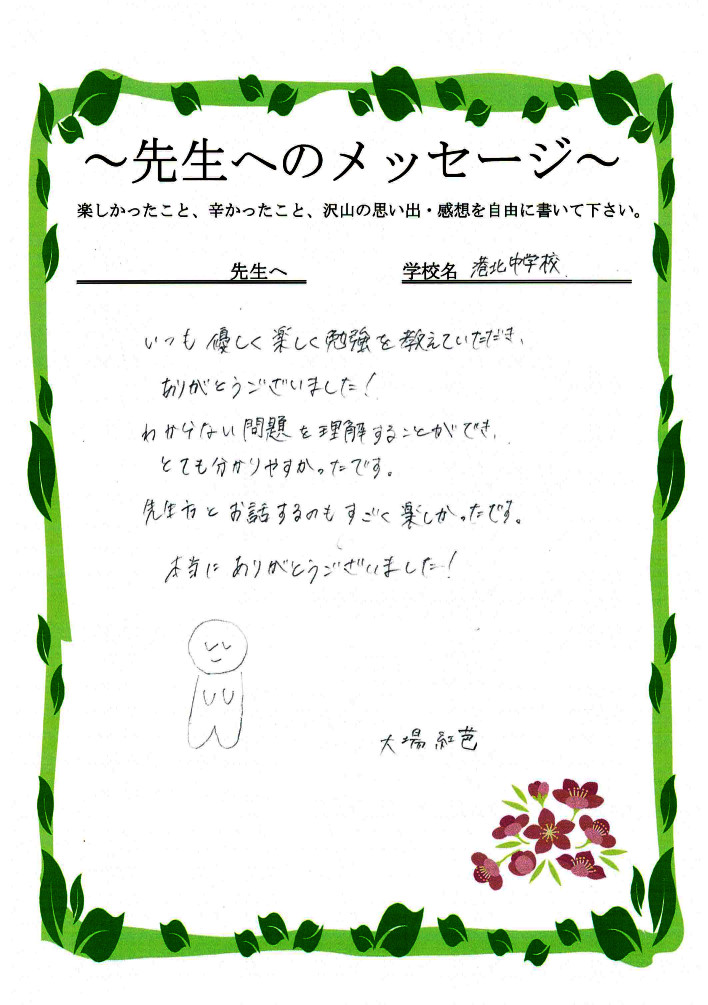 ～先生へのメッセージ～
楽しかったこと、辛かったこと、沢山の思い出・感想を自由に書いて下さい。
先生へ 学校名 港北中学校
いつも優しく楽しく勉強を教えていただき、
ありがとうございました！
わからない問題を理解することができ、
とても分かりやすかったです。
先生方とお話するのもすごく楽しかったです。
本当にありがとうございました！
大場 紅芭